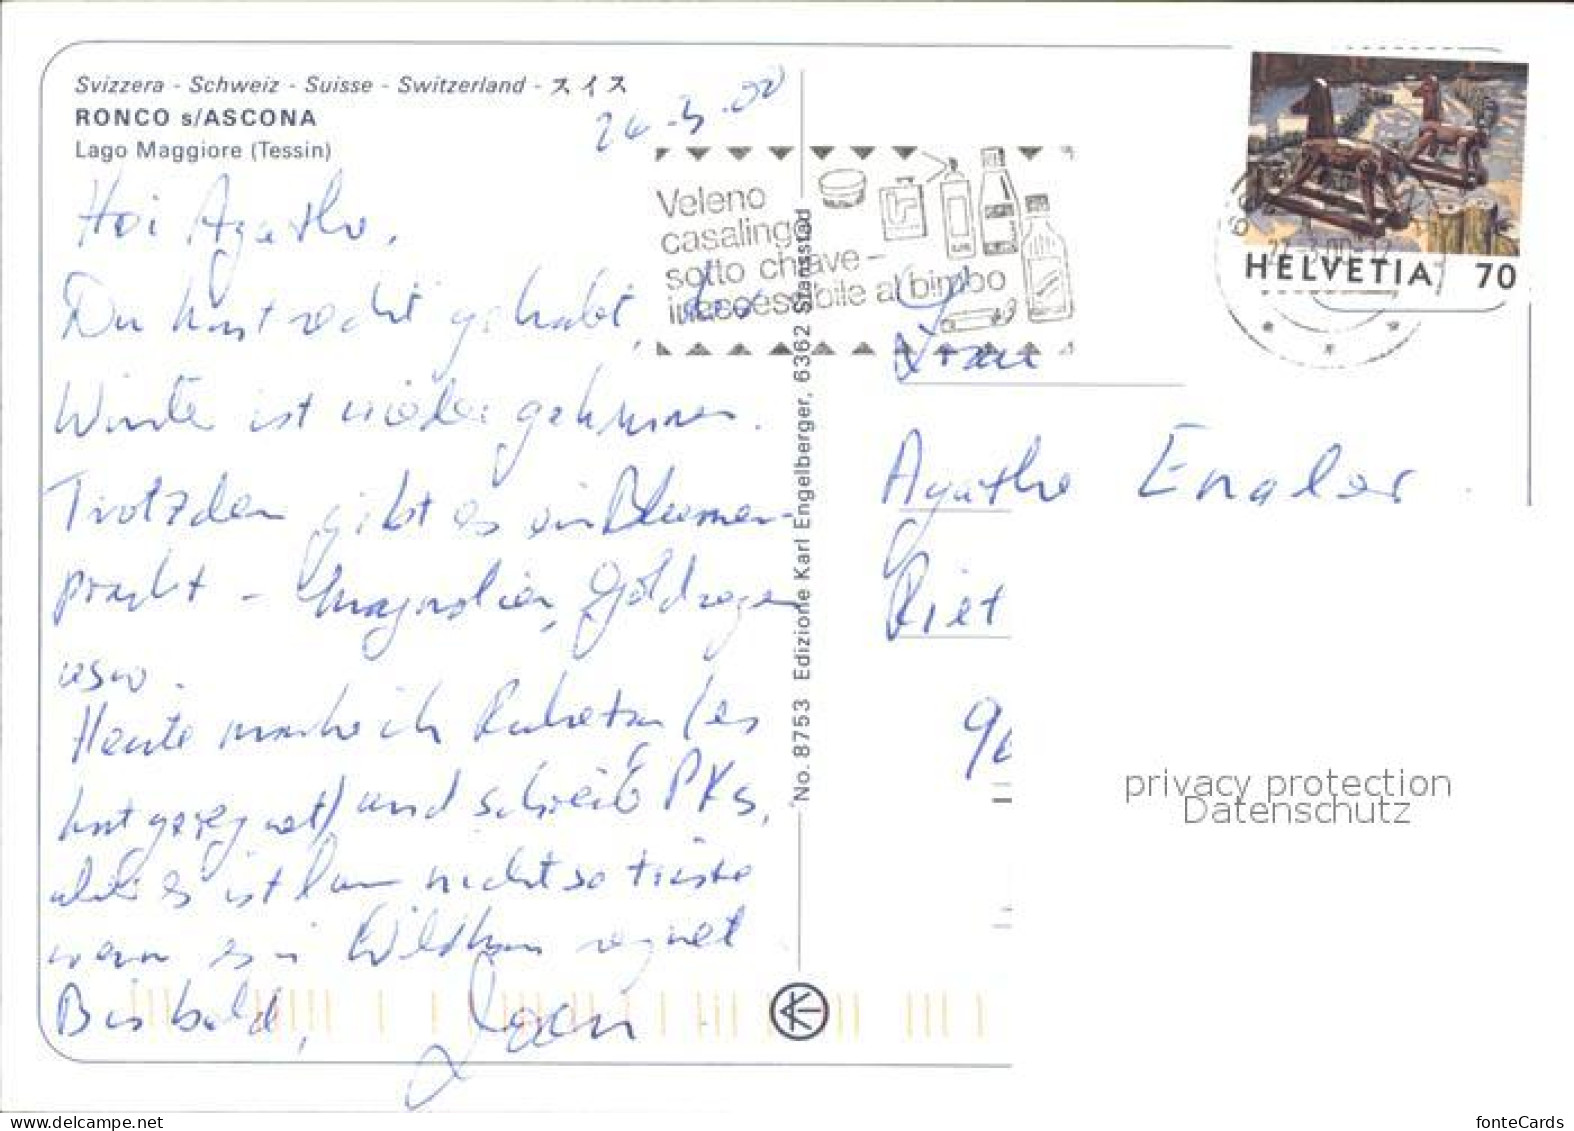 Svizzera - Schweiz - Suisse - Switzerland - スイス
RONCO s/ASCONA
Lago Maggiore (Tessin)
26.3.00
Hoi Agathe,
Du hast recht gehabt, der
Winter ist wieder gekommen.
Trotzdem gibt es ein Blumen-
pracht - Magnolien, Goldregen
usw.
Heute mache ich Ruhetag (es
hat geregnet) und schreib PKs,
aber es ist hier nicht so trist
wenn es in Wildhaus regnet
Bis bald,
Veleno
casalingo
sotto chiave -
inaccessibile al bimbo
No. 8753 Edizione Karl Engelberger, 6362 Stansstad
27.-3.00-12
HELVETIA 70
Frau
Agathe Engler
Riet
9
privacy protection
Datenschutz
www.delcampe.net
fonteCards